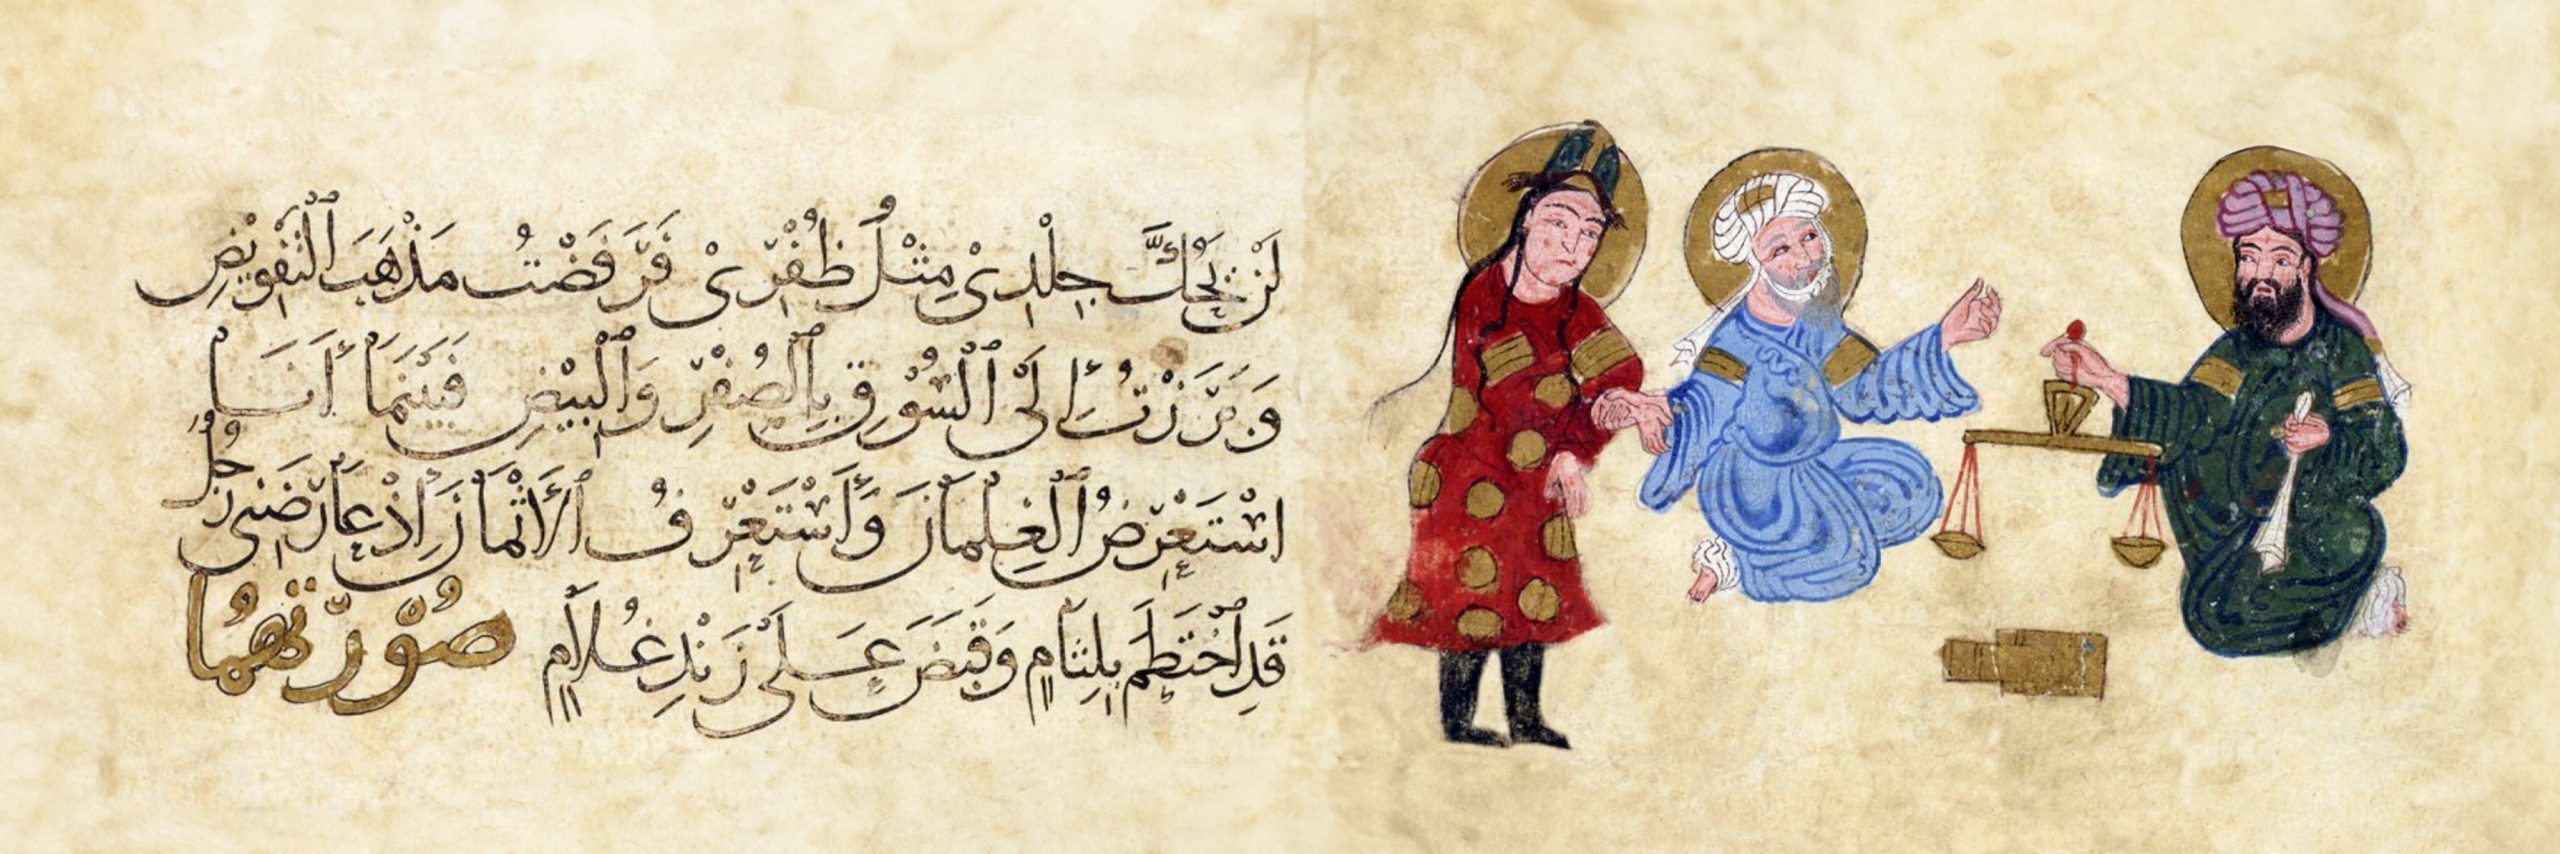 لَنْ يَحُكَّ جِلْدِي مِثْلُ ظُفْرِي فَرَفَضْتُ مَذْهَبَ التَّفْوِيضِ
وَبَرَزْتُ إِلَى السُّوقِ بِالصُّفْرِ وَالْبِيضِ فَبَيْنَمَا أَنَا
اسْتَعْرِضُ الْغِلْمَانَ وَأَسْتَعْرِفُ الْأَثْمَانَ إِذْ عَارَضَنِي رَجُلٌ
قَدِ اخْتَطَمَ بِلِثَامٍ وَقَبَضَ عَلَى زَنْدِ غُلَامٍ صُورَتهُمَا